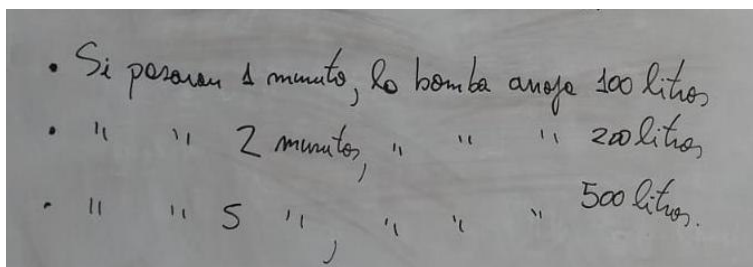 • Si pasaran 1 minuto, la bomba arroja 100 litros
• " " 2 minutos, " " " 200 litros
• " " 5 ", " " " 500 litros.